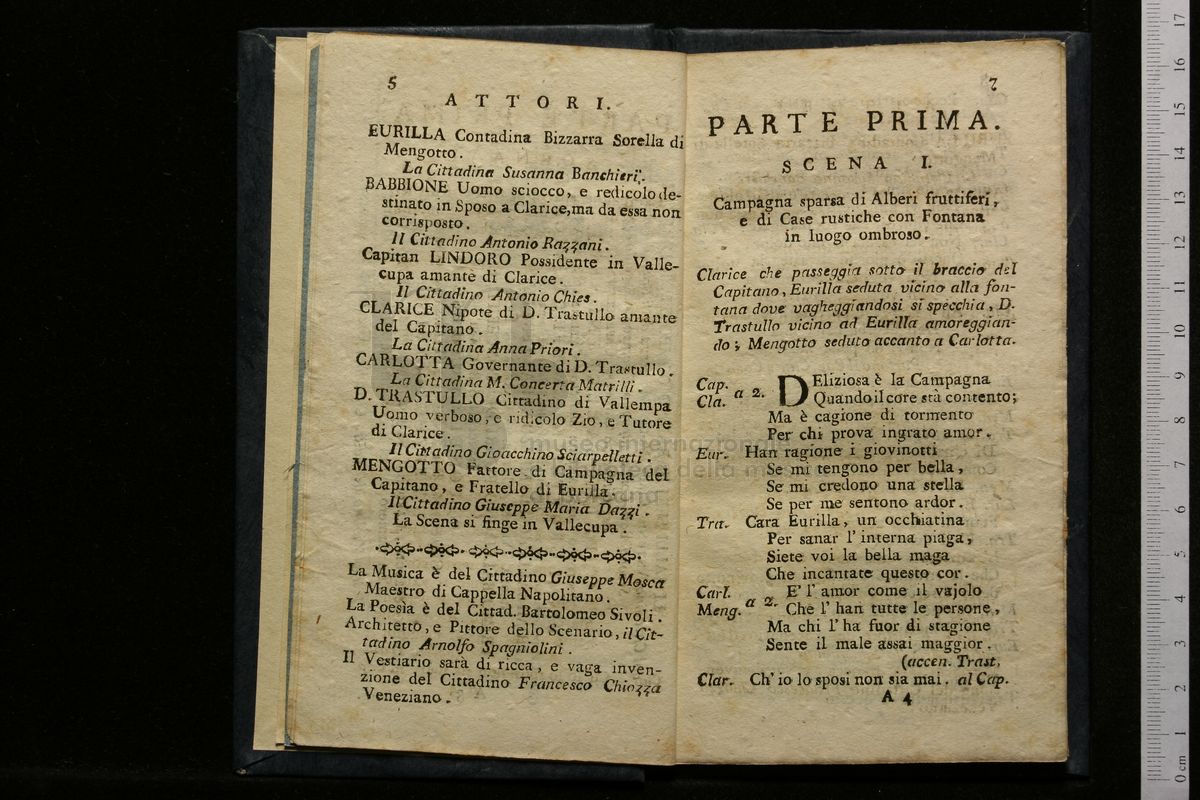 5
ATTORI.
EURILLA Contadina Bizzarra Sorella di
Mengotto.
La Cittadina Susanna Banchieri.
BABBIONE Uomo sciocco, e redicolo de-
stinato in Sposo a Clarice, ma da essa non
corrisposto.
Il Cittadino Antonio Razzani.
Capitan LINDORO Possidente in Valle-
cupa amante di Clarice.
Il Cittadino Antonio Chies.
CLARICE Nipote di D. Trastullo amante
del Capitano.
La Cittadina Anna Priori.
CARLOTTA Governante di D. Trastullo.
La Cittadina M. Concerta Matrilli.
D. TRASTULLO Cittadino di Vallempa
Uomo verboso, e ridicolo Zio, e Tutore
di Clarice.
Il Cittadino Gioacchino Sciarpelletti.
MENGOTTO Fattore di Campagna del
Capitano, e Fratello di Eurilla.
Il Cittadino Giuseppe Maria Dazzi.
La Scena si finge in Vallecupa.
La Musica è del Cittadino Giuseppe Mosca
Maestro di Cappella Napolitano.
La Poesia è del Cittad. Bartolomeo Sivoli.
Architetto, e Pittore dello Scenario, il Cit-
tadino Arnolfo Spagniolini.
Il Vestiario sarà di ricca, e vaga inven-
zione del Cittadino Francesco Chiozza
Veneziano.
7
PARTE PRIMA.
SCENA I.
Campagna sparsa di Alberi fruttiferi,
e di Case rustiche con Fontana
in luogo ombroso.
Clarice che passeggia sotto il braccio del
Capitano, Eurilla seduta vicino alla fon-
tana dove vagheggiandosi si specchia, D.
Trastullo vicino ad Eurilla amoreggian-
do; Mengotto seduto accanto a Carlotta.
Cap. a 2. DEliziosa è la Campagna
Cla. Quando il core stà contento;
Ma è cagione di tormento
Per chi prova ingrato amor.
Eur. Han ragione i giovinotti
Se mi tengono per bella,
Se mi credono una stella
Se per me sentono ardor.
Tra. Cara Eurilla, un occhiatina
Per sanar l' interna piaga,
Siete voi la bella maga
Che incantate questo cor.
Carl. a 2. E' l' amor come il vajolo
Meng. Che l' han tutte le persone,
Ma chi l' ha fuor di stagione
Sente il male assai maggior.
(accen. Trast.
Clar. Ch' io lo sposi non sia mai. al Cap.
A 4
museo internazionale
della musica
0 cm 1 2 3 4 5 6 7 8 9 10 11 12 13 14 15 16 17